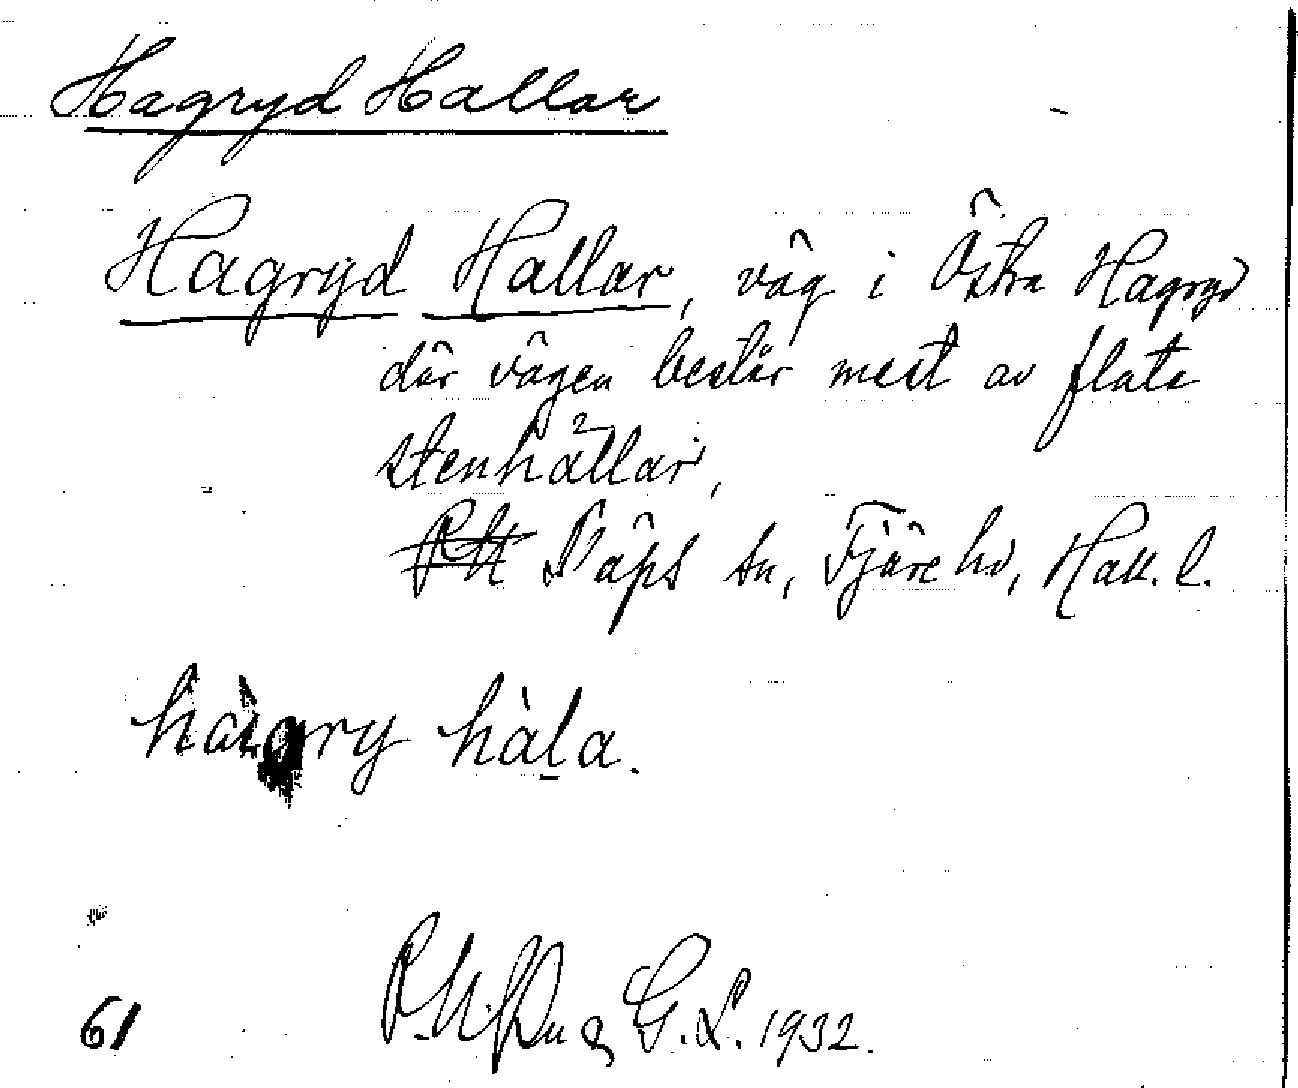 Hagryd Hallar
Hagryd Hallar, väg i Östra Hagryd
där vägen består mest av flata
stenhällar,
Släps sn, Fjäre hd, Hall. l.
hàgry hàḷa.
61 G. L. 1932.